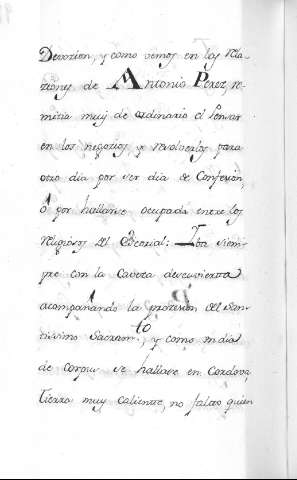 Devozion, y como vemos en las Rela-
ziones de Antonio Perez, re-
mitia muy de ordinario el Pensar
en los negozios y resolverlos para
otro dia por ser dia de Confesion,
ô por hallarse ocupado entre los
Religiosos del Escorial: Iba siem-
pre con la Caveza descuvierta
acompañando la prozesion del San-
tissimo Sacram.to, y como un dia
de Corpus se hallase en Cordova,
tierra muy caliente, no faltò quien